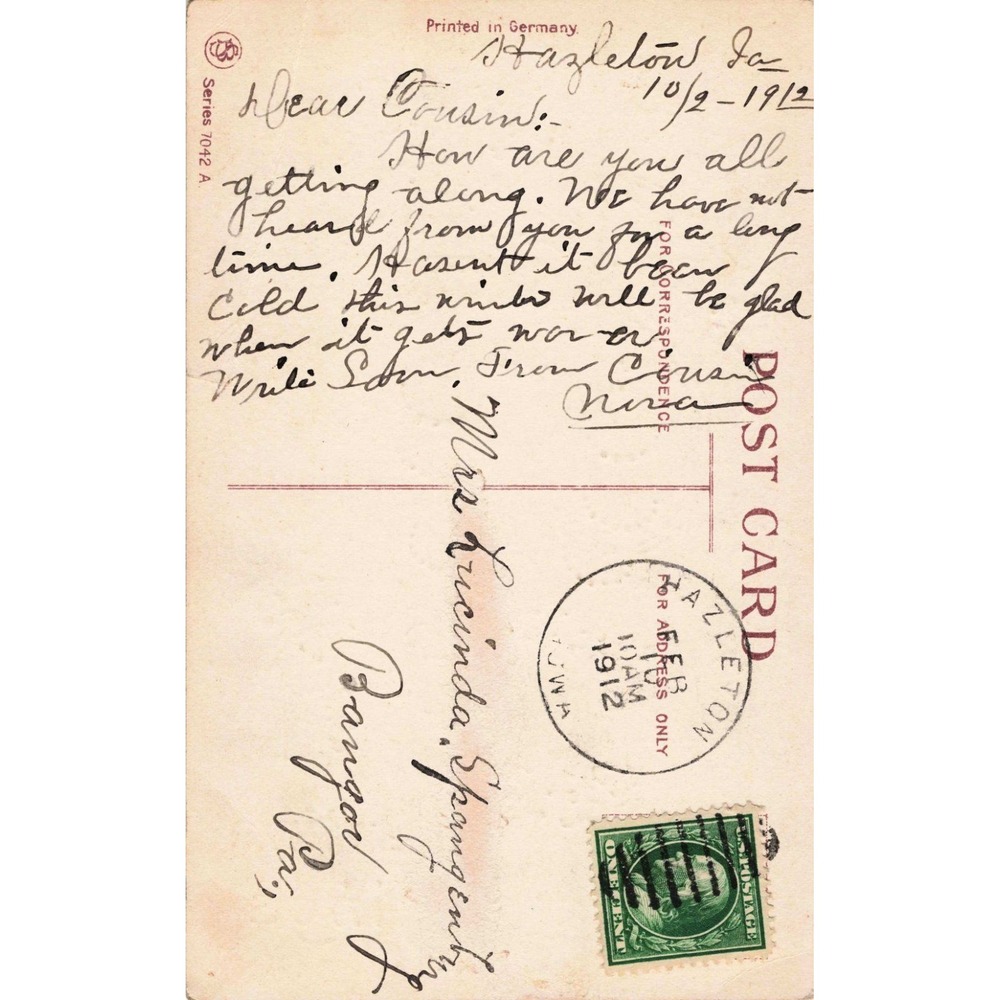 Printed in Germany.
Series 7042 A
Hazleton Ia
10/2-1912
Dear Cousin:-
How are you all
getting along. We have not
heard from you for a long
time. Hasent it been
cold this winter will be glad
when it gets
Write Soon. From Cousin
Nora
FOR CORRESPONDENCE
POST CARD
FOR ADDRESS ONLY
HAZLETON
FEB
10
10AM
1912
IOWA
U.S. POSTAGE
ONE CENT
Mrs Lucinda. Spangenburg
Bangor
Pa.,